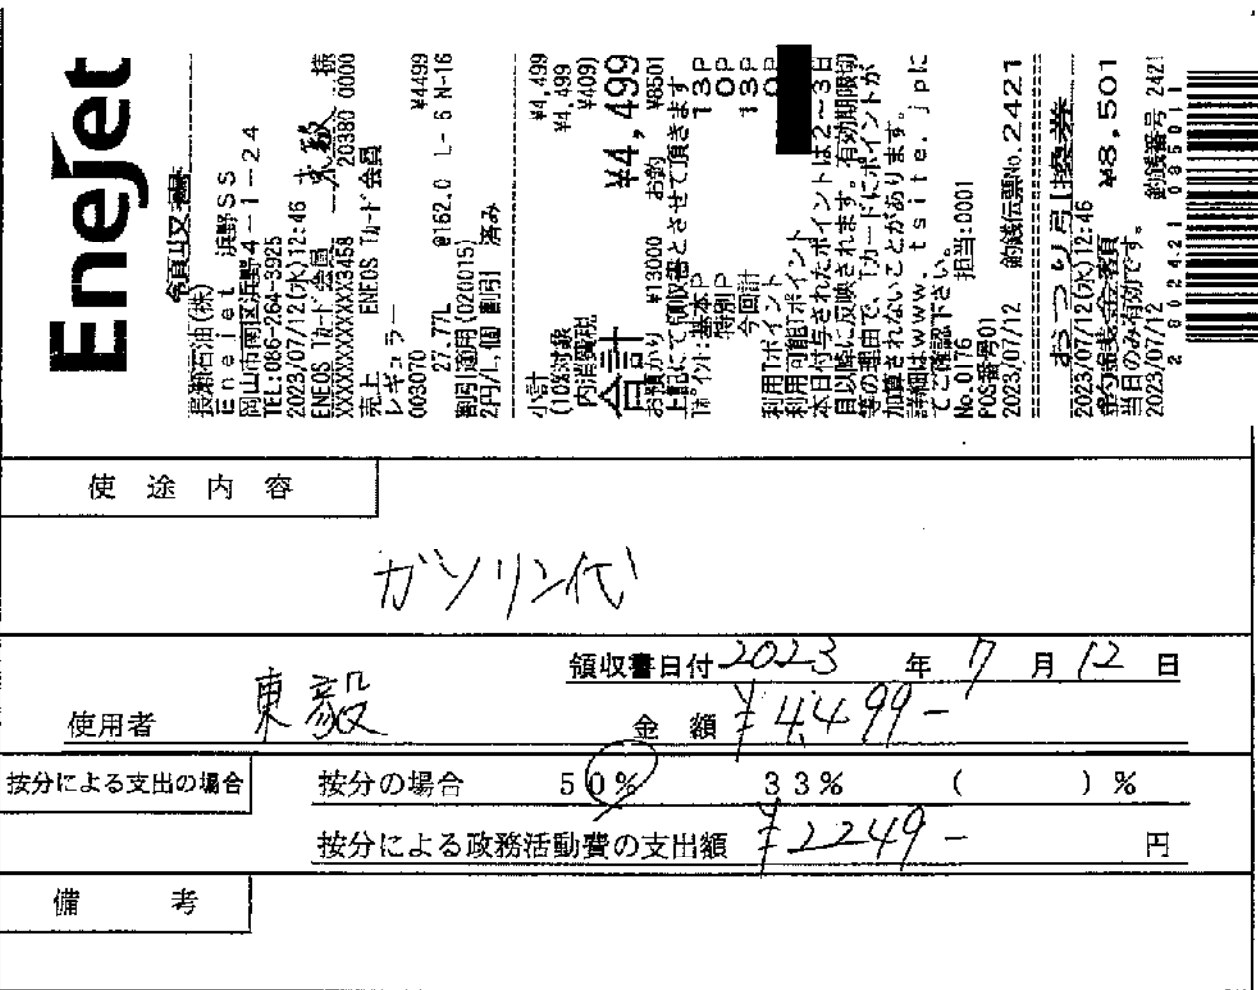 EneJet
領収書
長瀬石油(株)
EneJet 浜野SS
岡山市南区浜野4-1-24
TEL:086-264-3925
2023/07/12(水)12:46
ENEOS Tカード会員 東毅 様
XXXXXXXXXXXX3458 20380 0000
売上 ENEOS Tカード会員
レギュラー
003070 ¥4499
27.77L @162.0 L- 6 N-16
割引適用(020015)
2円/L,個 割引 済み
小計 ¥4,499
(10%対象 ¥4,499
内消費税 ¥409)
合計 ¥4,499
お預かり ¥13000 お釣 ¥8501
上記にて領収書とさせて頂きます
Tポイント:基本P 13P
特別P 0P
今回計 13P
利用Tポイント 0P
利用可能Tポイント
本日付与されたポイントは2~3日
目以降に反映されます。有効期限切
等の理由で、Tカードにポイントが
加算されないことがあります。
詳細はwww.tsite.jpに
てご確認下さい。
No.0176 担当:0001
POS番号01
2023/07/12 釣銭伝票No.2421
おつり引換券
2023/07/12(水)12:46
釣銭金額 ¥8,501
当日のみ有効です。
2023/07/12 釣銭番号 2421
2 802421 085011
使途内容
ガソリン代
領収書日付 2023 年 7 月 12 日
使用者 東毅 金額 ¥4,499-
按分による支出の場合 按分の場合 50% 33% ( )%
按分による政務活動費の支出額 ¥2249- 円
備考